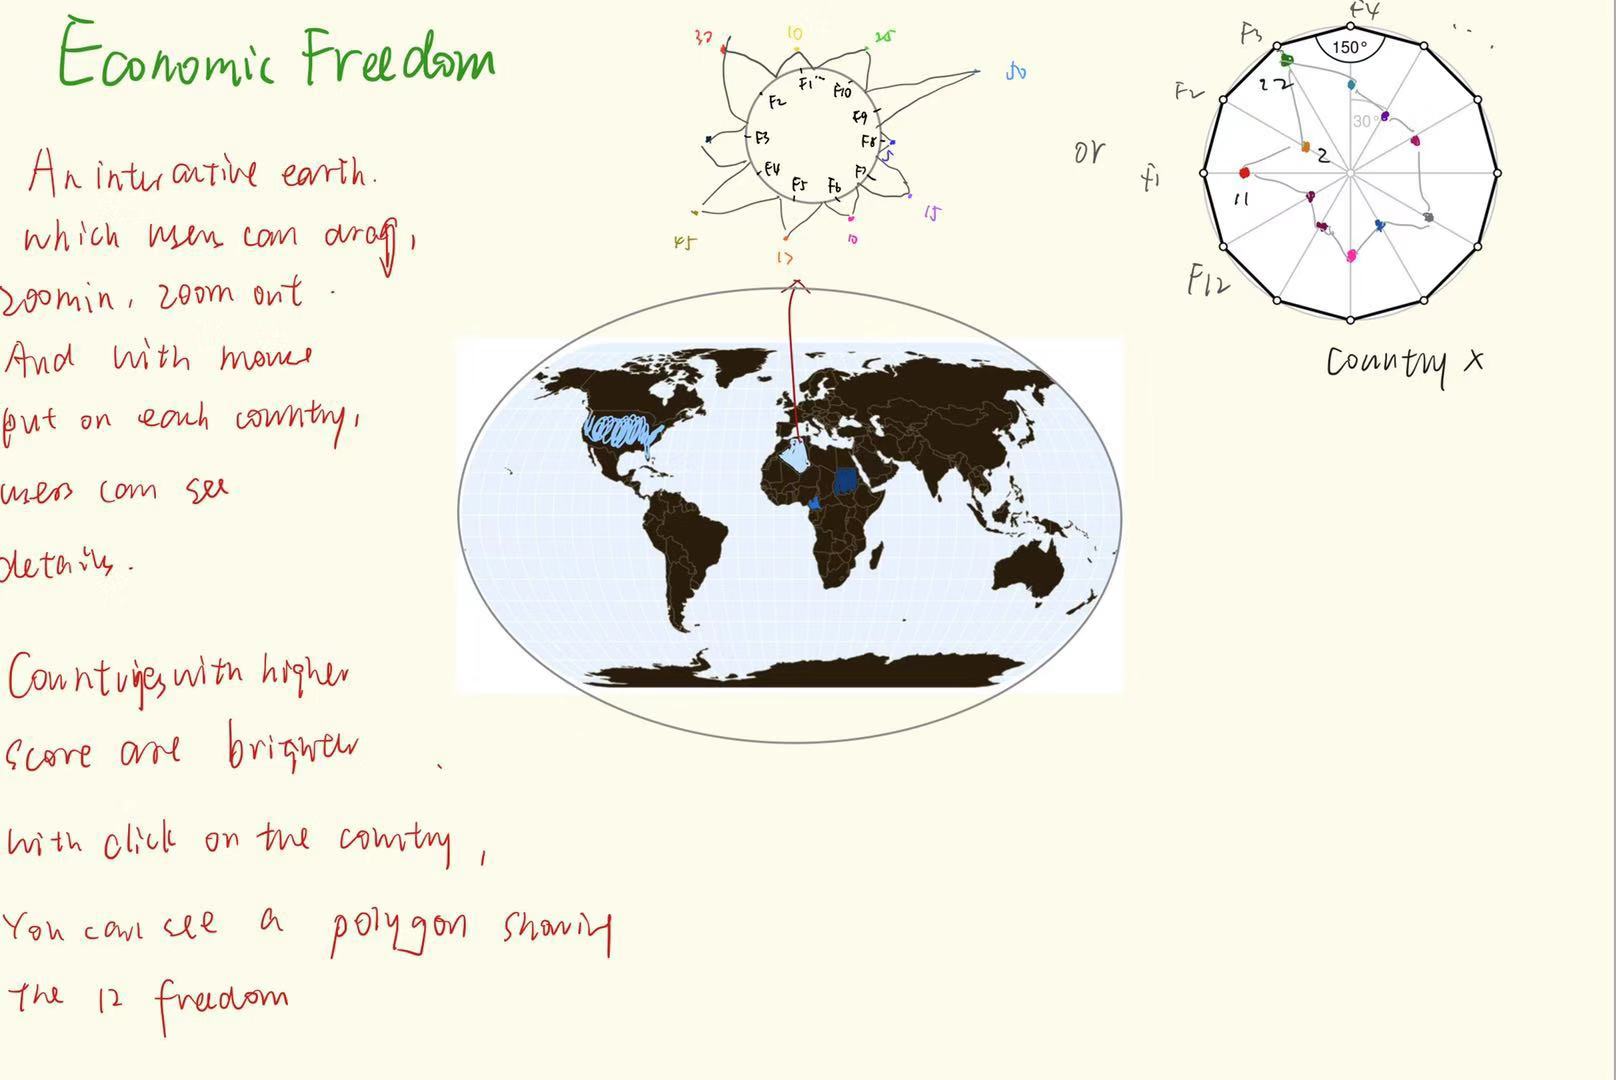 Economic Freedom
An interactive earth.
which users can drag,
zoom in, zoom out.
And with mouse
put on each country,
users can see
details.
Countries with higher
score are brighter
with click on the country,
You can see a polygon showing
the 12 freedom
32
10
25
50
F1
F10
F2
F9
F3
F8
5
F4
F7
F5
F6
15
45
17
10
or
F4
F3
150°
22
F2
30°
2
F1
11
F12
Country X